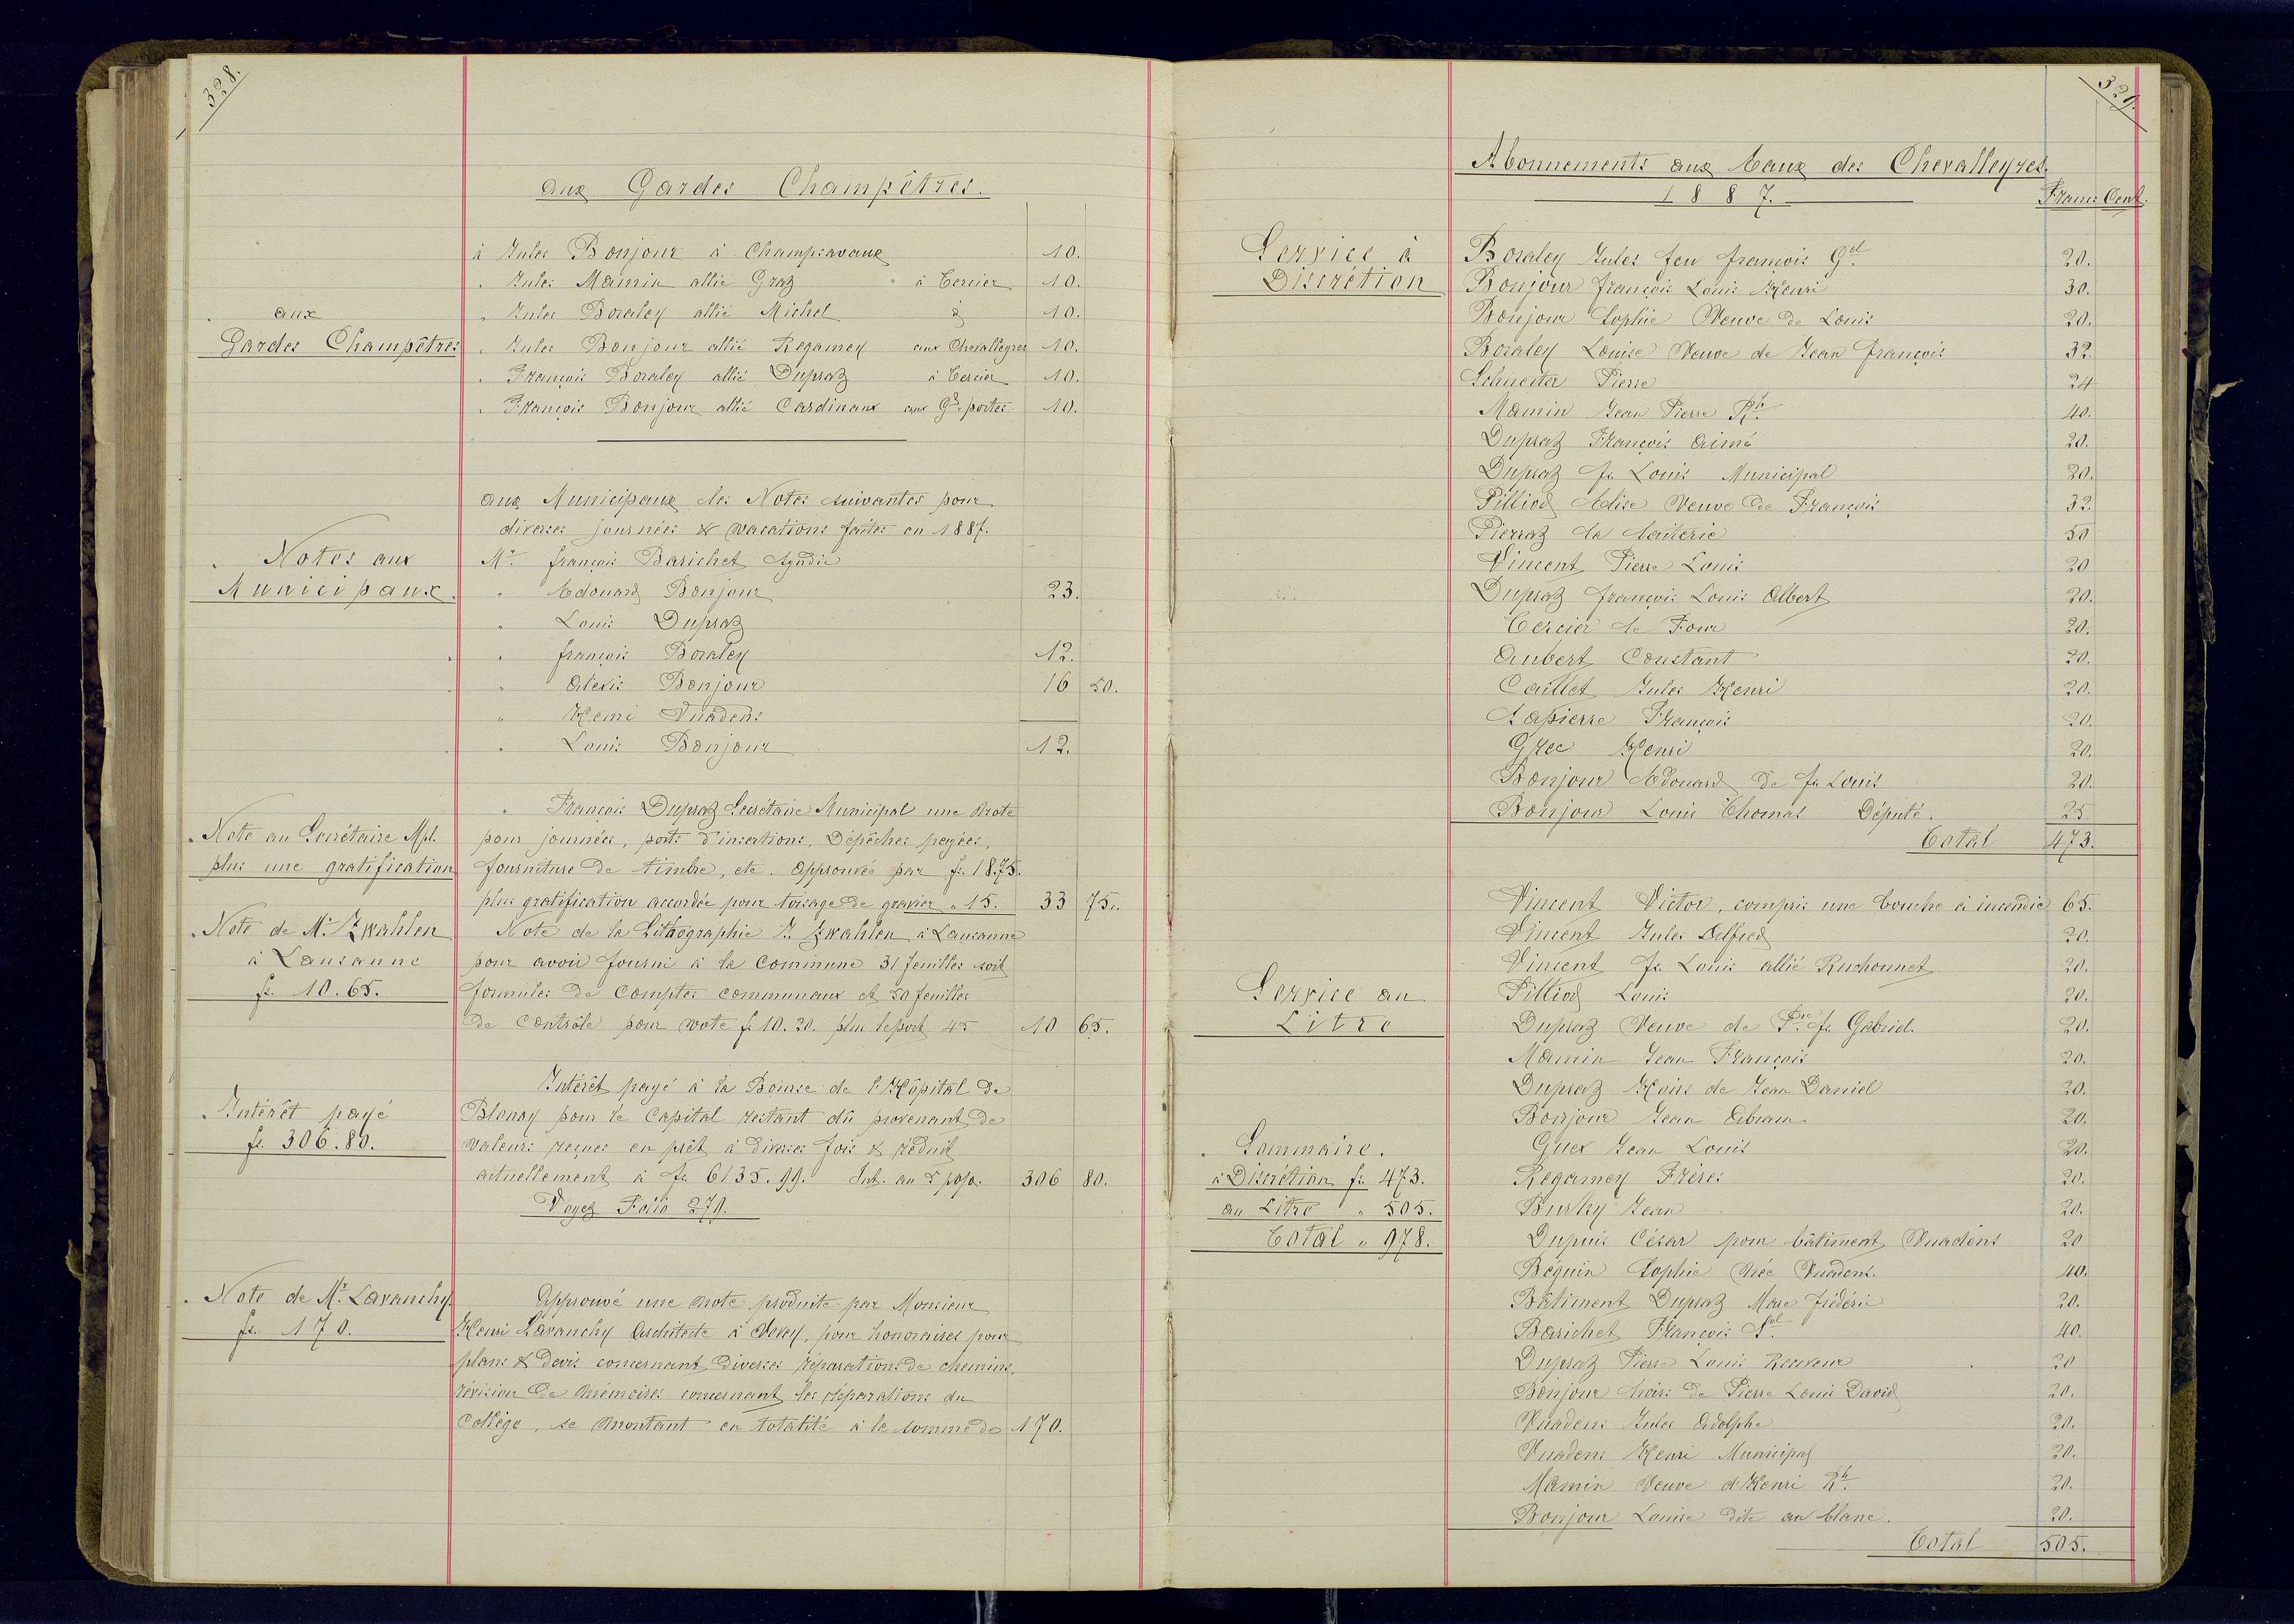 328.
aux Gardes Champêtres.
aux
Gardes Champêtres
à Jules Bonjour à Champsavaux 10.
" Jules Mamin allié Graz à Cercier 10.
" Jules Boraley allié Michel à 10.
" Jules Bonjour allié Regamey aux Chevalleyres 10.
" François Boraley allié Dupraz à Cercier 10.
" François Bonjour allié Cardinaux aux Gdes portes. 10.
Notes aux
Municipaux.
aux Municipaux les Notes suivantes pour
diverses journées & vacations faites en 1887.
Mr. François Barichet Syndic
" Edouard Bonjour 23.
" Louis Dupraz
" françois Boraley 12.
" Alexis Bonjour 16 50.
" Henri Vuadens
" Louis Bonjour 12.
Note au Secrétaire Mpl.
plus une gratification
" François Dupraz Secrétaire Municipal une Note
pour journées, ports d'insertions, Dépêches payées,
fourniture de timbre, etc. Approuvée par fr. 18.75.
plus gratification accordée pour toisage de gravier " 15. 33 75.
Note de Mr. Zwahlen
à Lausanne
fr. 10.65.
Note de la Lithographie J. Zwahlen à Lausanne
pour avoir fourni à la Commune 31 feuilles soit
formules de Comptes communaux et 50 feuilles
de Contrôle pour vote fr 10.20. plus le port 45 10 65.
Intérêt payé
fr. 306.80.
Intérêt payé à la Bourse de l'Hôpital de
Blonay pour le Capital restant dû provenant de
valeurs reçues en prêt à diverses fois & réduit
actuellement à fr. 6135.99. Int. au 5 po/o. 306 80.
Voyez Folio 279.
Note de Mr. Lavanchy
fr. 170.
Approuvé une note produite par Monsieur
Henri Lavanchy Architecte à Vevey, pour honoraires pour
plans & devis concernant diverses réparations de chemins,
révision de mémoires concernant les réparations du
Collège, se montant en totalité à la somme de 170.
329.
Abonnements aux Eaux des Chevalleyres.
1887.
Francs Cent.
Service à
Discrétion
Boraley Jules feu françois Gel. 20.
Bonjour François Louis Henri 30.
Bonjour Sophie Veuve de Louis 20.
Boraley Louise Veuve de Jean François 32.
Schueiter Pierre 24
Mamin Jean Pierre Rh. 40.
Dupraz François Aimé 20.
Dupraz fs Louis Municipal 20.
Pilliod Elise Veuve de François 32.
Pierraz la laiterie 50
Vincent Pierre Louis 20
Dupraz françois Louis Albert 20.
Cercier le Four 20.
Aubert Constant 20.
Caillet Jules Henri 20.
Lapierre François 20.
Grec Henri 20.
Bonjour Edouard de fs Louis 20.
Bonjour Louis Thomas Député. 25
Total 473.
Service au
Litre
Vincent Victor, compris une bouche à incendie 65.
Vincent Jules Alfred 20.
Vincent fs Louis allié Ruchonnet 20.
Pilliod Louis 20.
Dupraz Veuve de Pre fs Gabriel. 20.
Mamin Jean François 20.
Dupraz Hoirs de Jean Daniel 20.
Bonjour Jean Abram 20.
Guex Jean Louis 20.
Regamey Frères 20.
Burky Jean 20.
Dupuis César pour bâtiment Vuadens 20
Béguin Sophie née Vuadens. 40.
Bâtiment Dupraz Marc frédéric 20.
Barichet François Sel. 40.
Dupraz Pierre Louis Receveur 20
Bonjour hoirs de Pierre Louis David 20.
Vuadens Jules Adolphe 20.
Vuadens Henri Municipal 20.
Mamin Veuve d'Henri Rh. 20.
Bonjour Louise dite au blanc. 20.
Total 505.
Sommaire.
à Discrétion fr. 473.
au Litre " 505.
Total " 978.